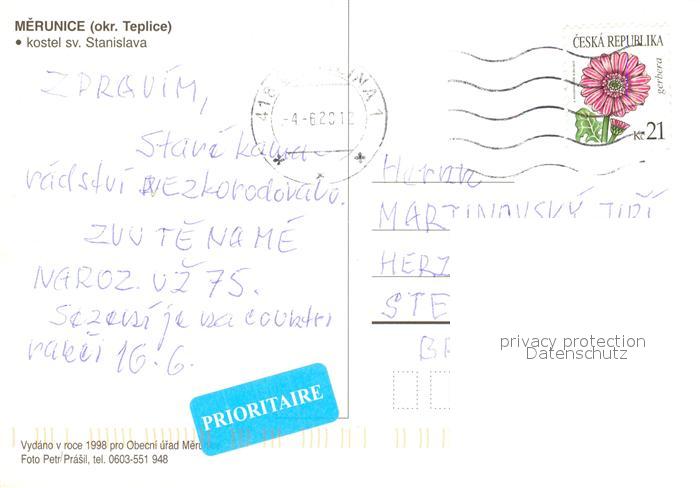 MĚRUNICE (okr. Teplice)
• kostel sv. Stanislava
ZDRAVÍM,
Staré kama-
rádství NEZkorodovalo.
ZVU TĚ NA MÉ
NAROZ. UŽ 75.
Sezení je na countri
ranči 16.6.
PRIORITAIRE
Vydáno v roce 1998 pro Obecní úřad Měru
Foto Petr Prášil, tel. 0603-551 948
418
-4-6 2012
1
ČESKÁ REPUBLIKA
gerbera
Kč 21
Herrn
MARTINOVSKÝ JIŘÍ
HERZ
STE
privacy protection
Datenschutz